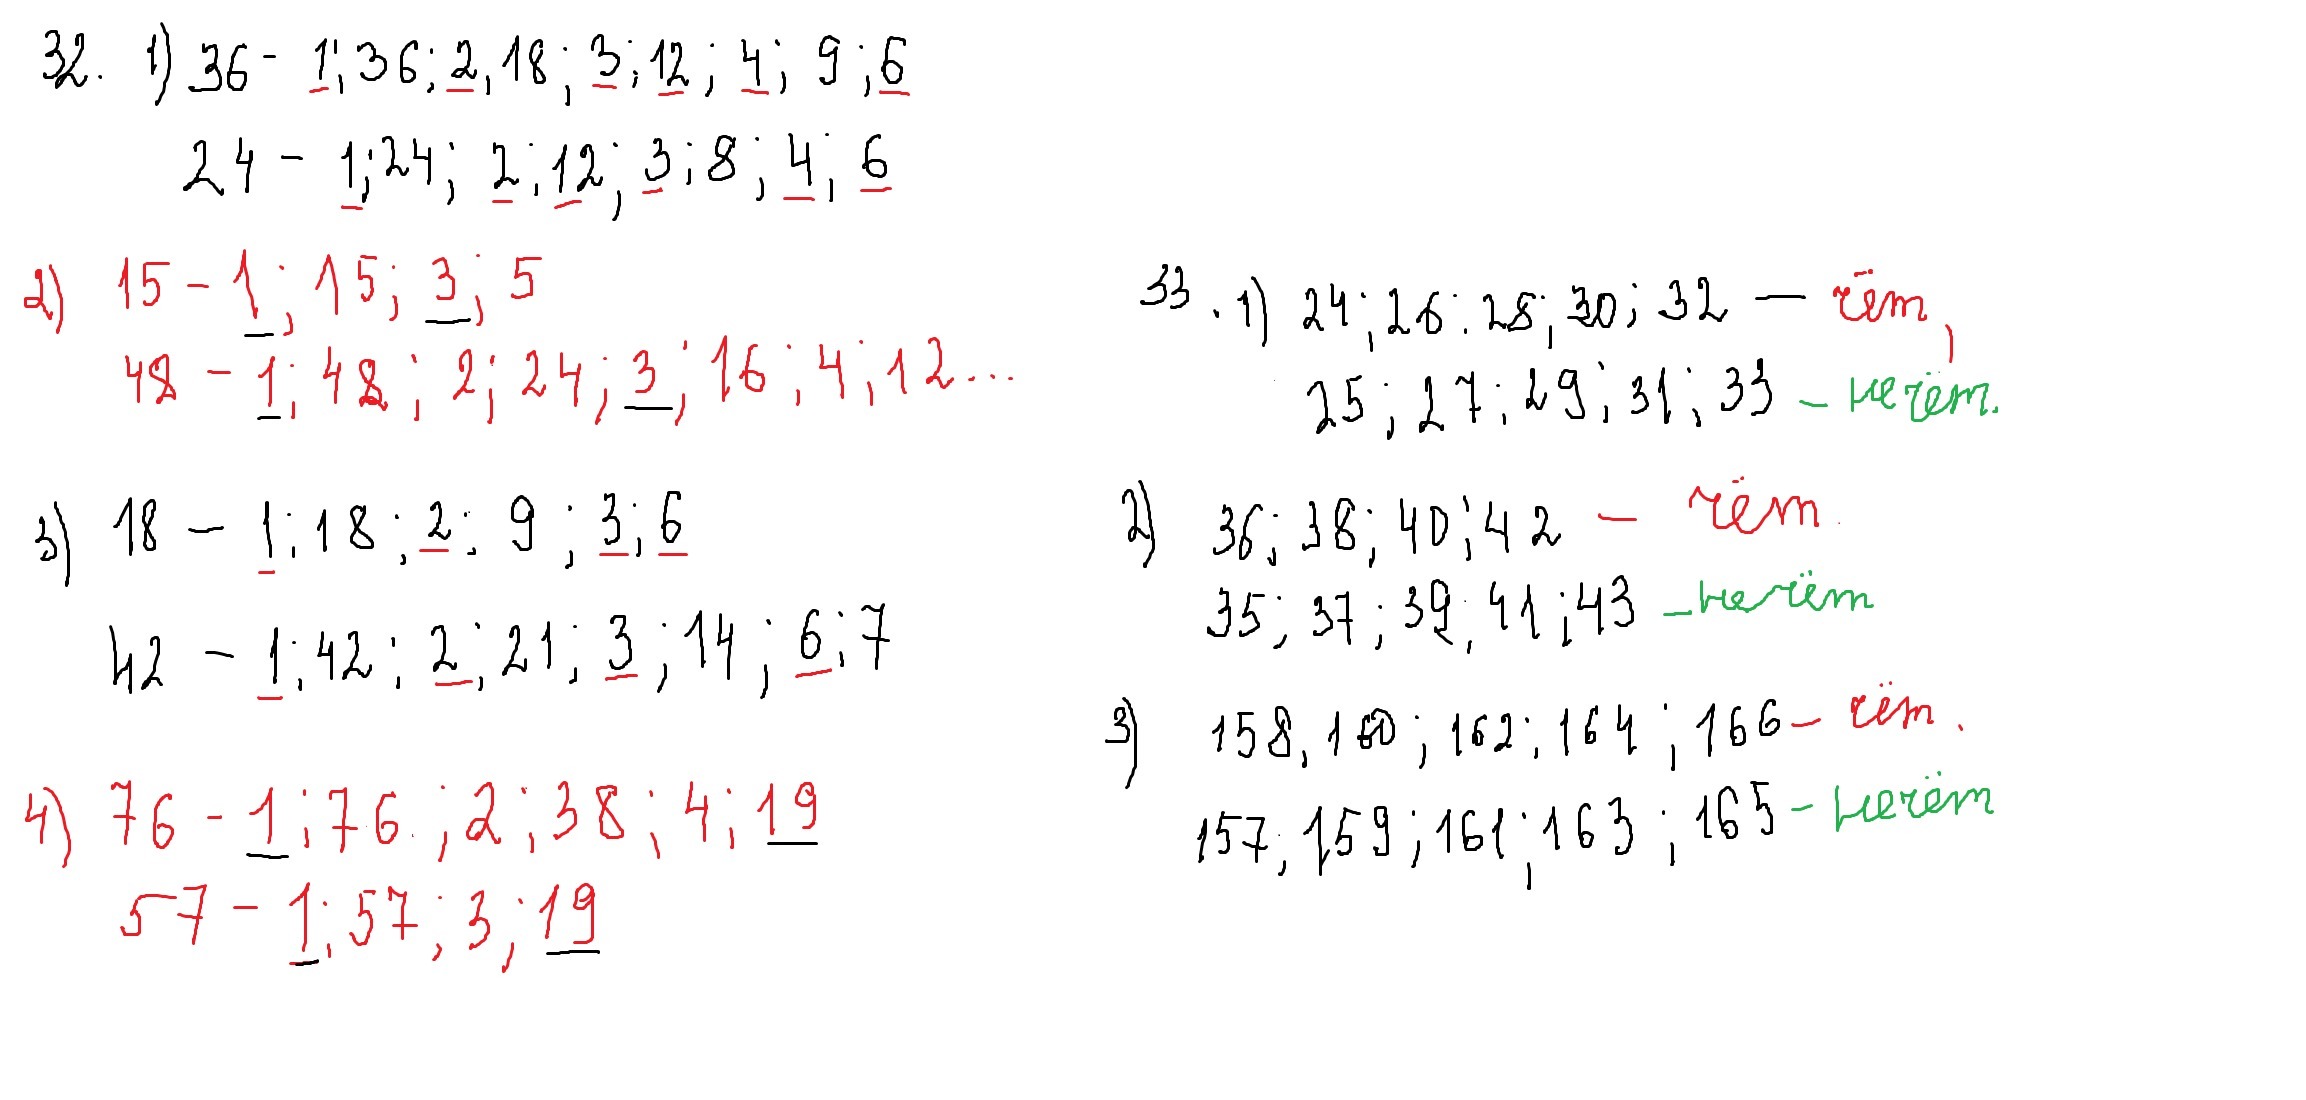 32. 1) 36 - 1; 36; 2; 18; 3; 12; 4; 9; 6
24 - 1; 24; 2; 12; 3; 8; 4; 6
2) 15 - 1; 15; 3; 5
48 - 1; 48; 2; 24; 3; 16; 4; 12...
3) 18 - 1; 18; 2; 9; 3; 6
42 - 1; 42; 2; 21; 3; 14; 6; 7
4) 76 - 1; 76; 2; 38; 4; 19
57 - 1; 57; 3; 19
33. 1) 24; 26; 28; 30; 32 - чёт,
25; 27; 29; 31; 33 - нечёт.
2) 36; 38; 40; 42 - чёт
35; 37; 39; 41; 43 - нечёт
3) 158, 160; 162; 164; 166 - чёт.
157; 159; 161; 163; 165 - нечёт